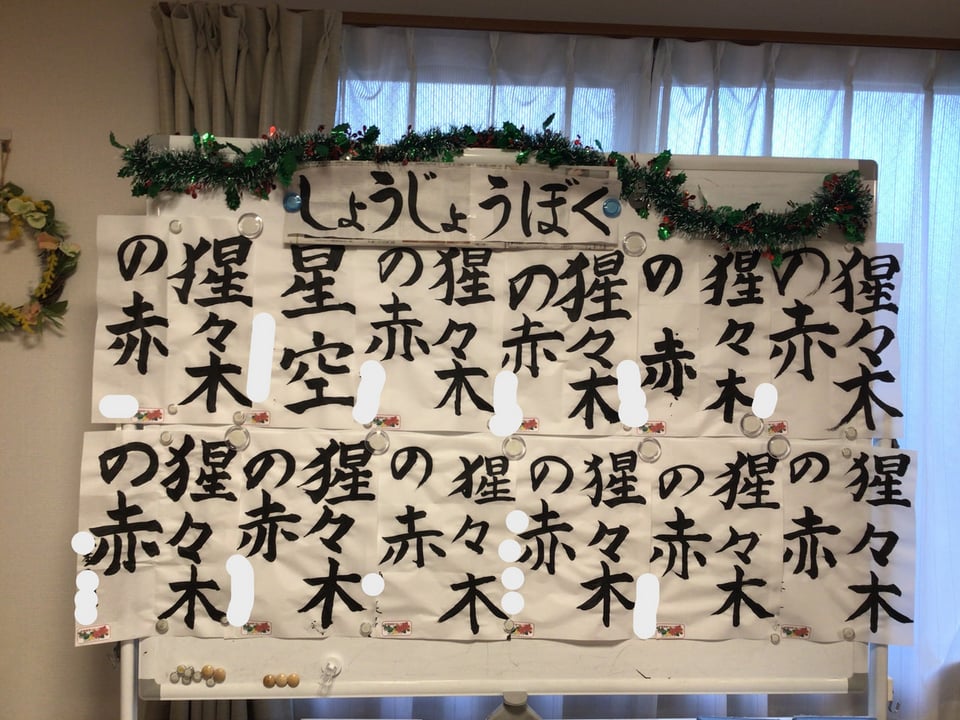 しょうじょうぼく
猩々木
の赤
猩々木
の赤
猩々木
の赤
猩々木
の赤
星空
猩々木
の赤
猩々木
の赤
猩々木
の赤
猩々木
の赤
猩々木
の赤
猩々木
の赤
猩々木
の赤